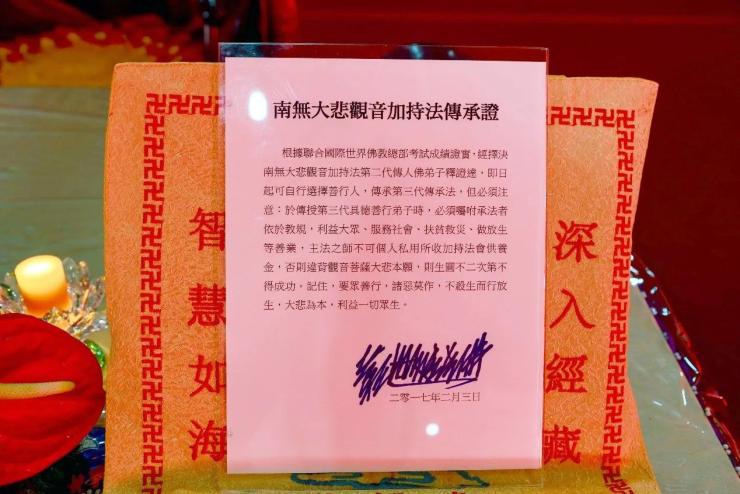 南無大悲觀音加持法傳承證
根據聯合國際世界佛教總部考試成績證實，經擇決
南無大悲觀音加持法第二代傳人佛弟子釋證達，即日
起可自行選擇善行人，傳承第三代傳承法。但必須注
意：於傳授第三代具德善行弟子時，必須囑咐承法者
依於教規，利益大眾、服務社會、扶貧救災、做放生
等善業，主法之師不可個人私用所收加持法會供養
金，否則違背觀音菩薩大悲本願，則生圓不二次第不
得成功。記住，要眾善行，諸惡莫作，不殺生而行放
生，大悲為本，利益一切眾生。
二零一七年二月三日
深入經藏
智慧如海